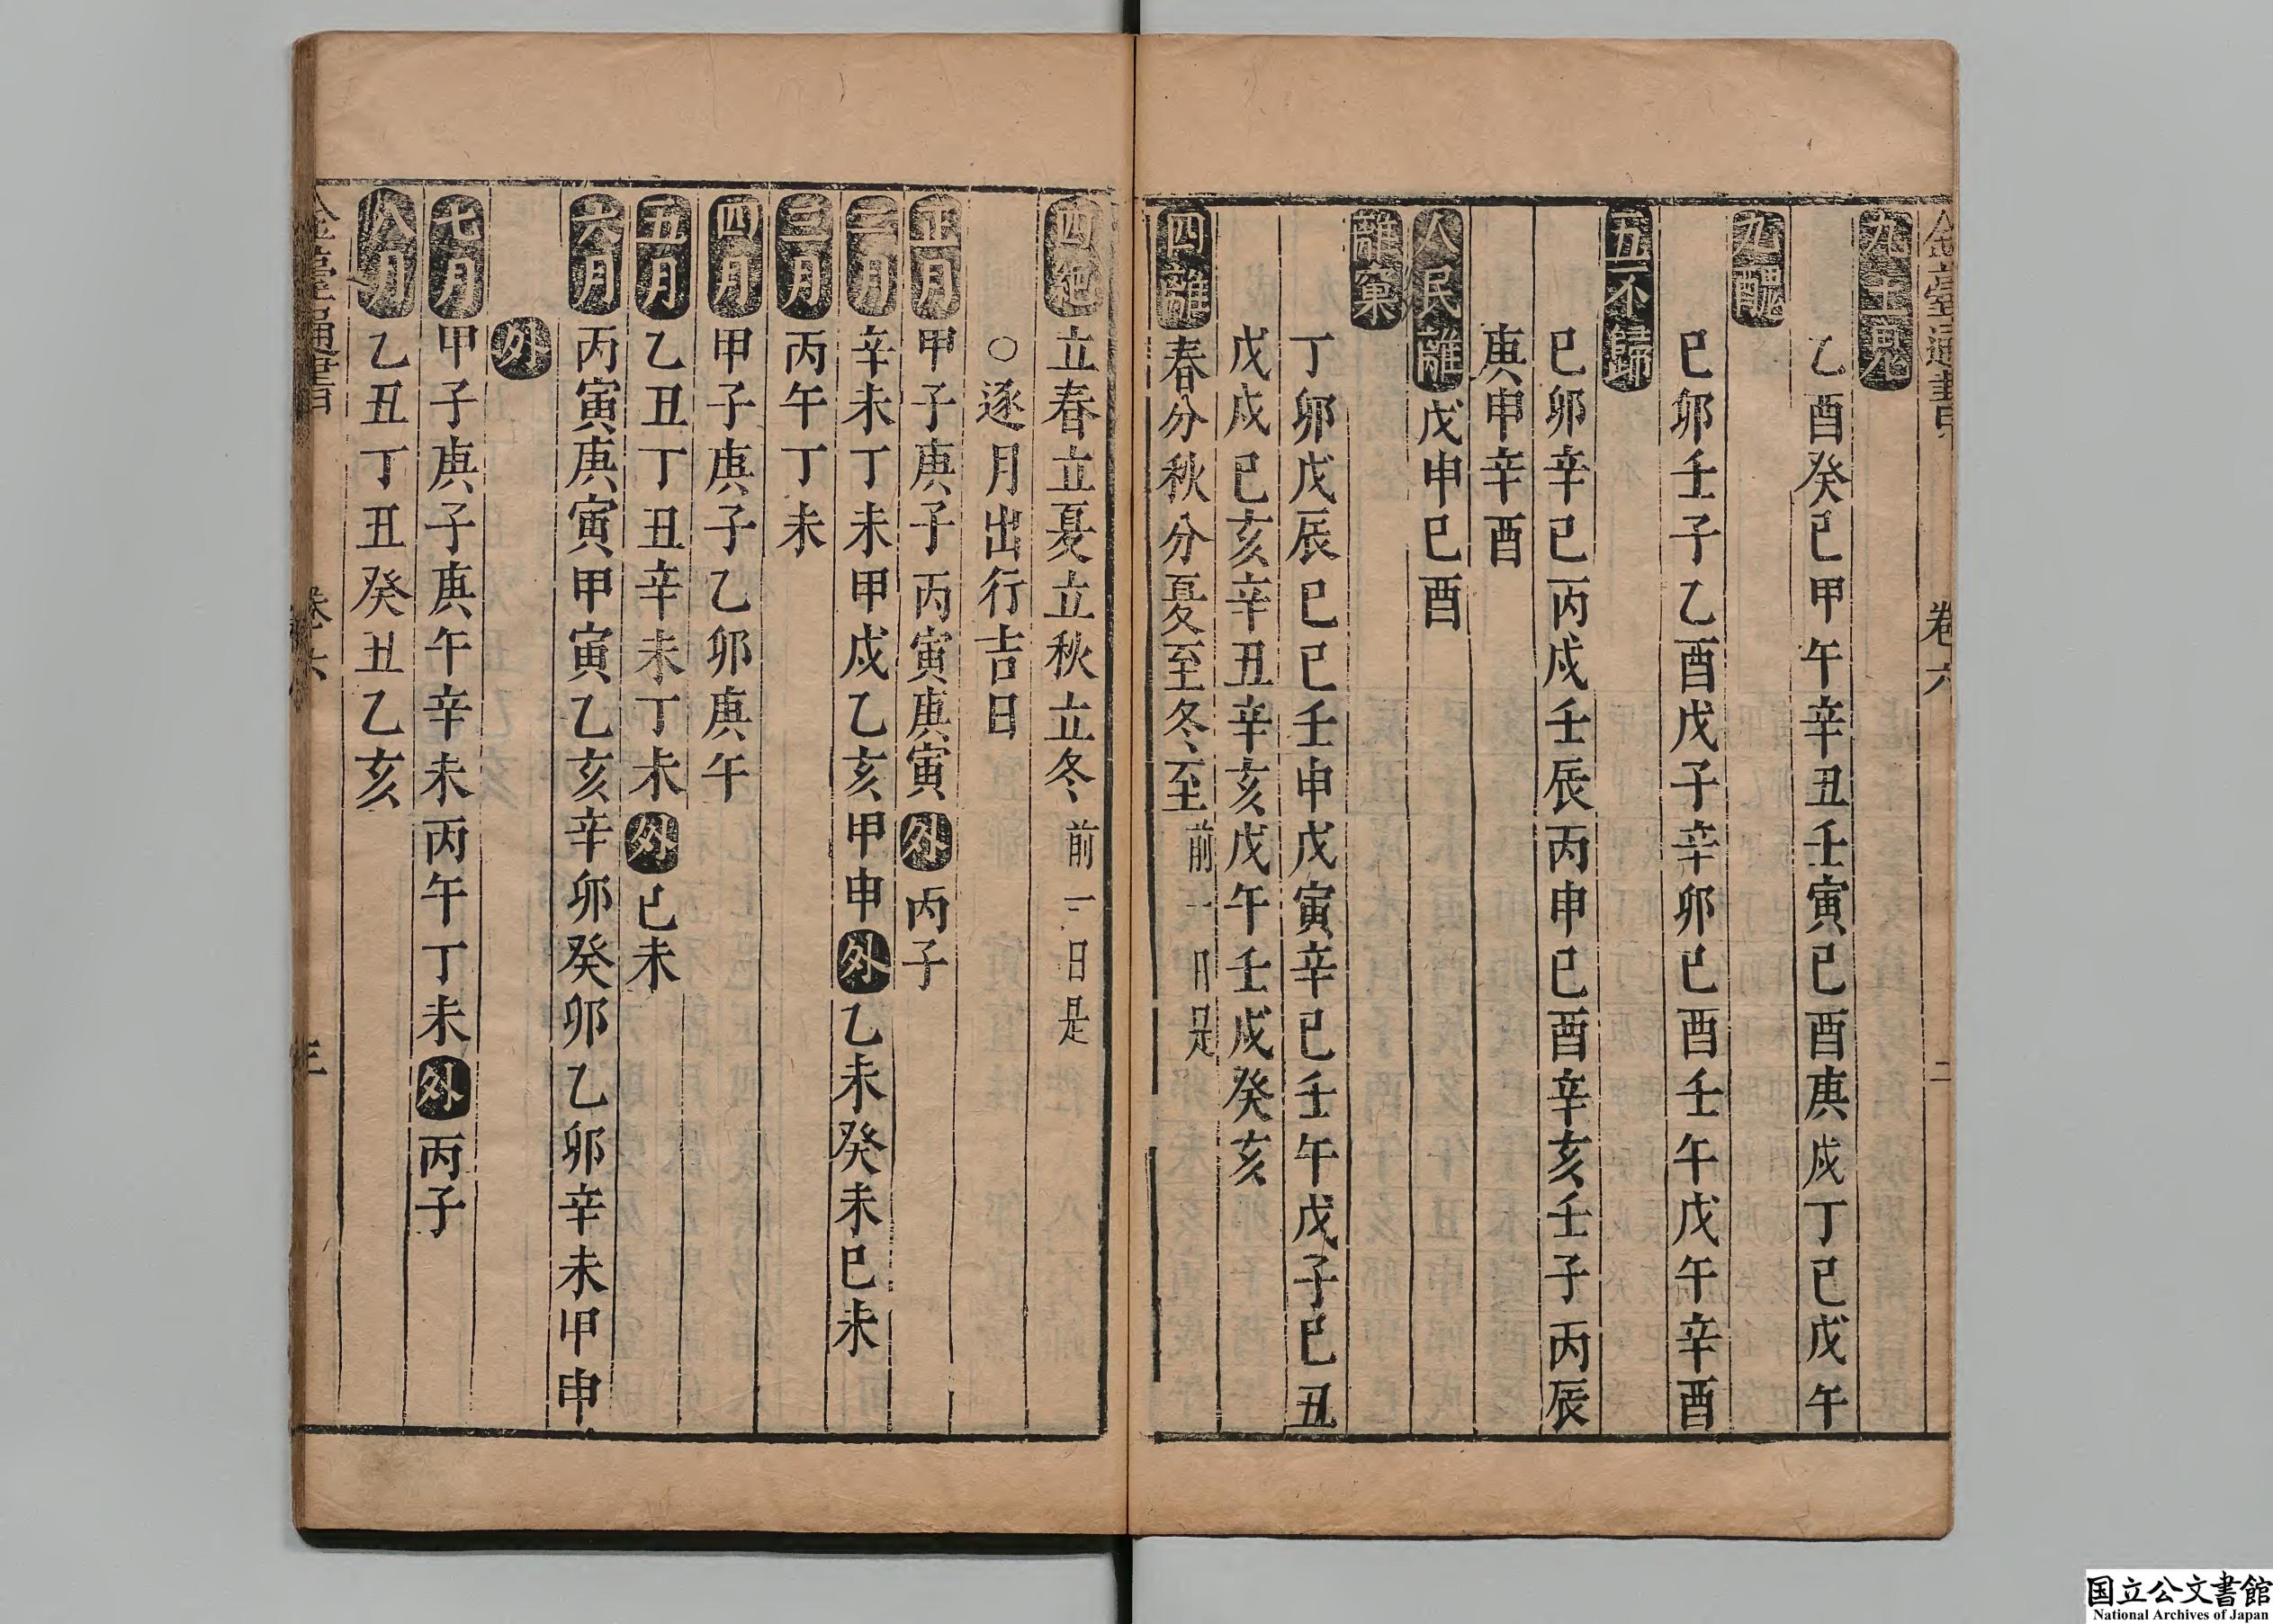 卷六 二
九土鬼
乙酉癸巳甲午辛丑壬寅己酉庚戌丁巳戊午
九醜
己卯壬子乙酉戊子辛卯己酉壬午戊午辛酉
五不歸
己卯辛巳丙戌壬辰丙申己酉辛亥壬子丙辰
庚申辛酉
人民離戊申己酉
離窠
丁卯戊辰己巳壬申戊寅辛巳壬午戊子己丑
戊戌己亥辛丑辛亥戊午壬戌癸亥
四離春分秋分夏至冬至前一日是
四絕立春立夏立秋立冬前一日是
○逐月出行吉日
正月甲子庚子丙寅庚寅外丙子
二月辛未丁未甲戌乙亥甲申外乙未癸未己未
三月丙午丁未
四月甲子庚子乙卯庚午
五月乙丑丁丑辛未丁未外己未
六月丙寅庚寅甲寅乙亥辛卯癸卯乙卯辛未甲申
外
七月甲子庚子庚午辛未丙午丁未外丙子
八月乙丑丁丑癸丑乙亥
卷六 三
国立公文書館
National Archives of Japan